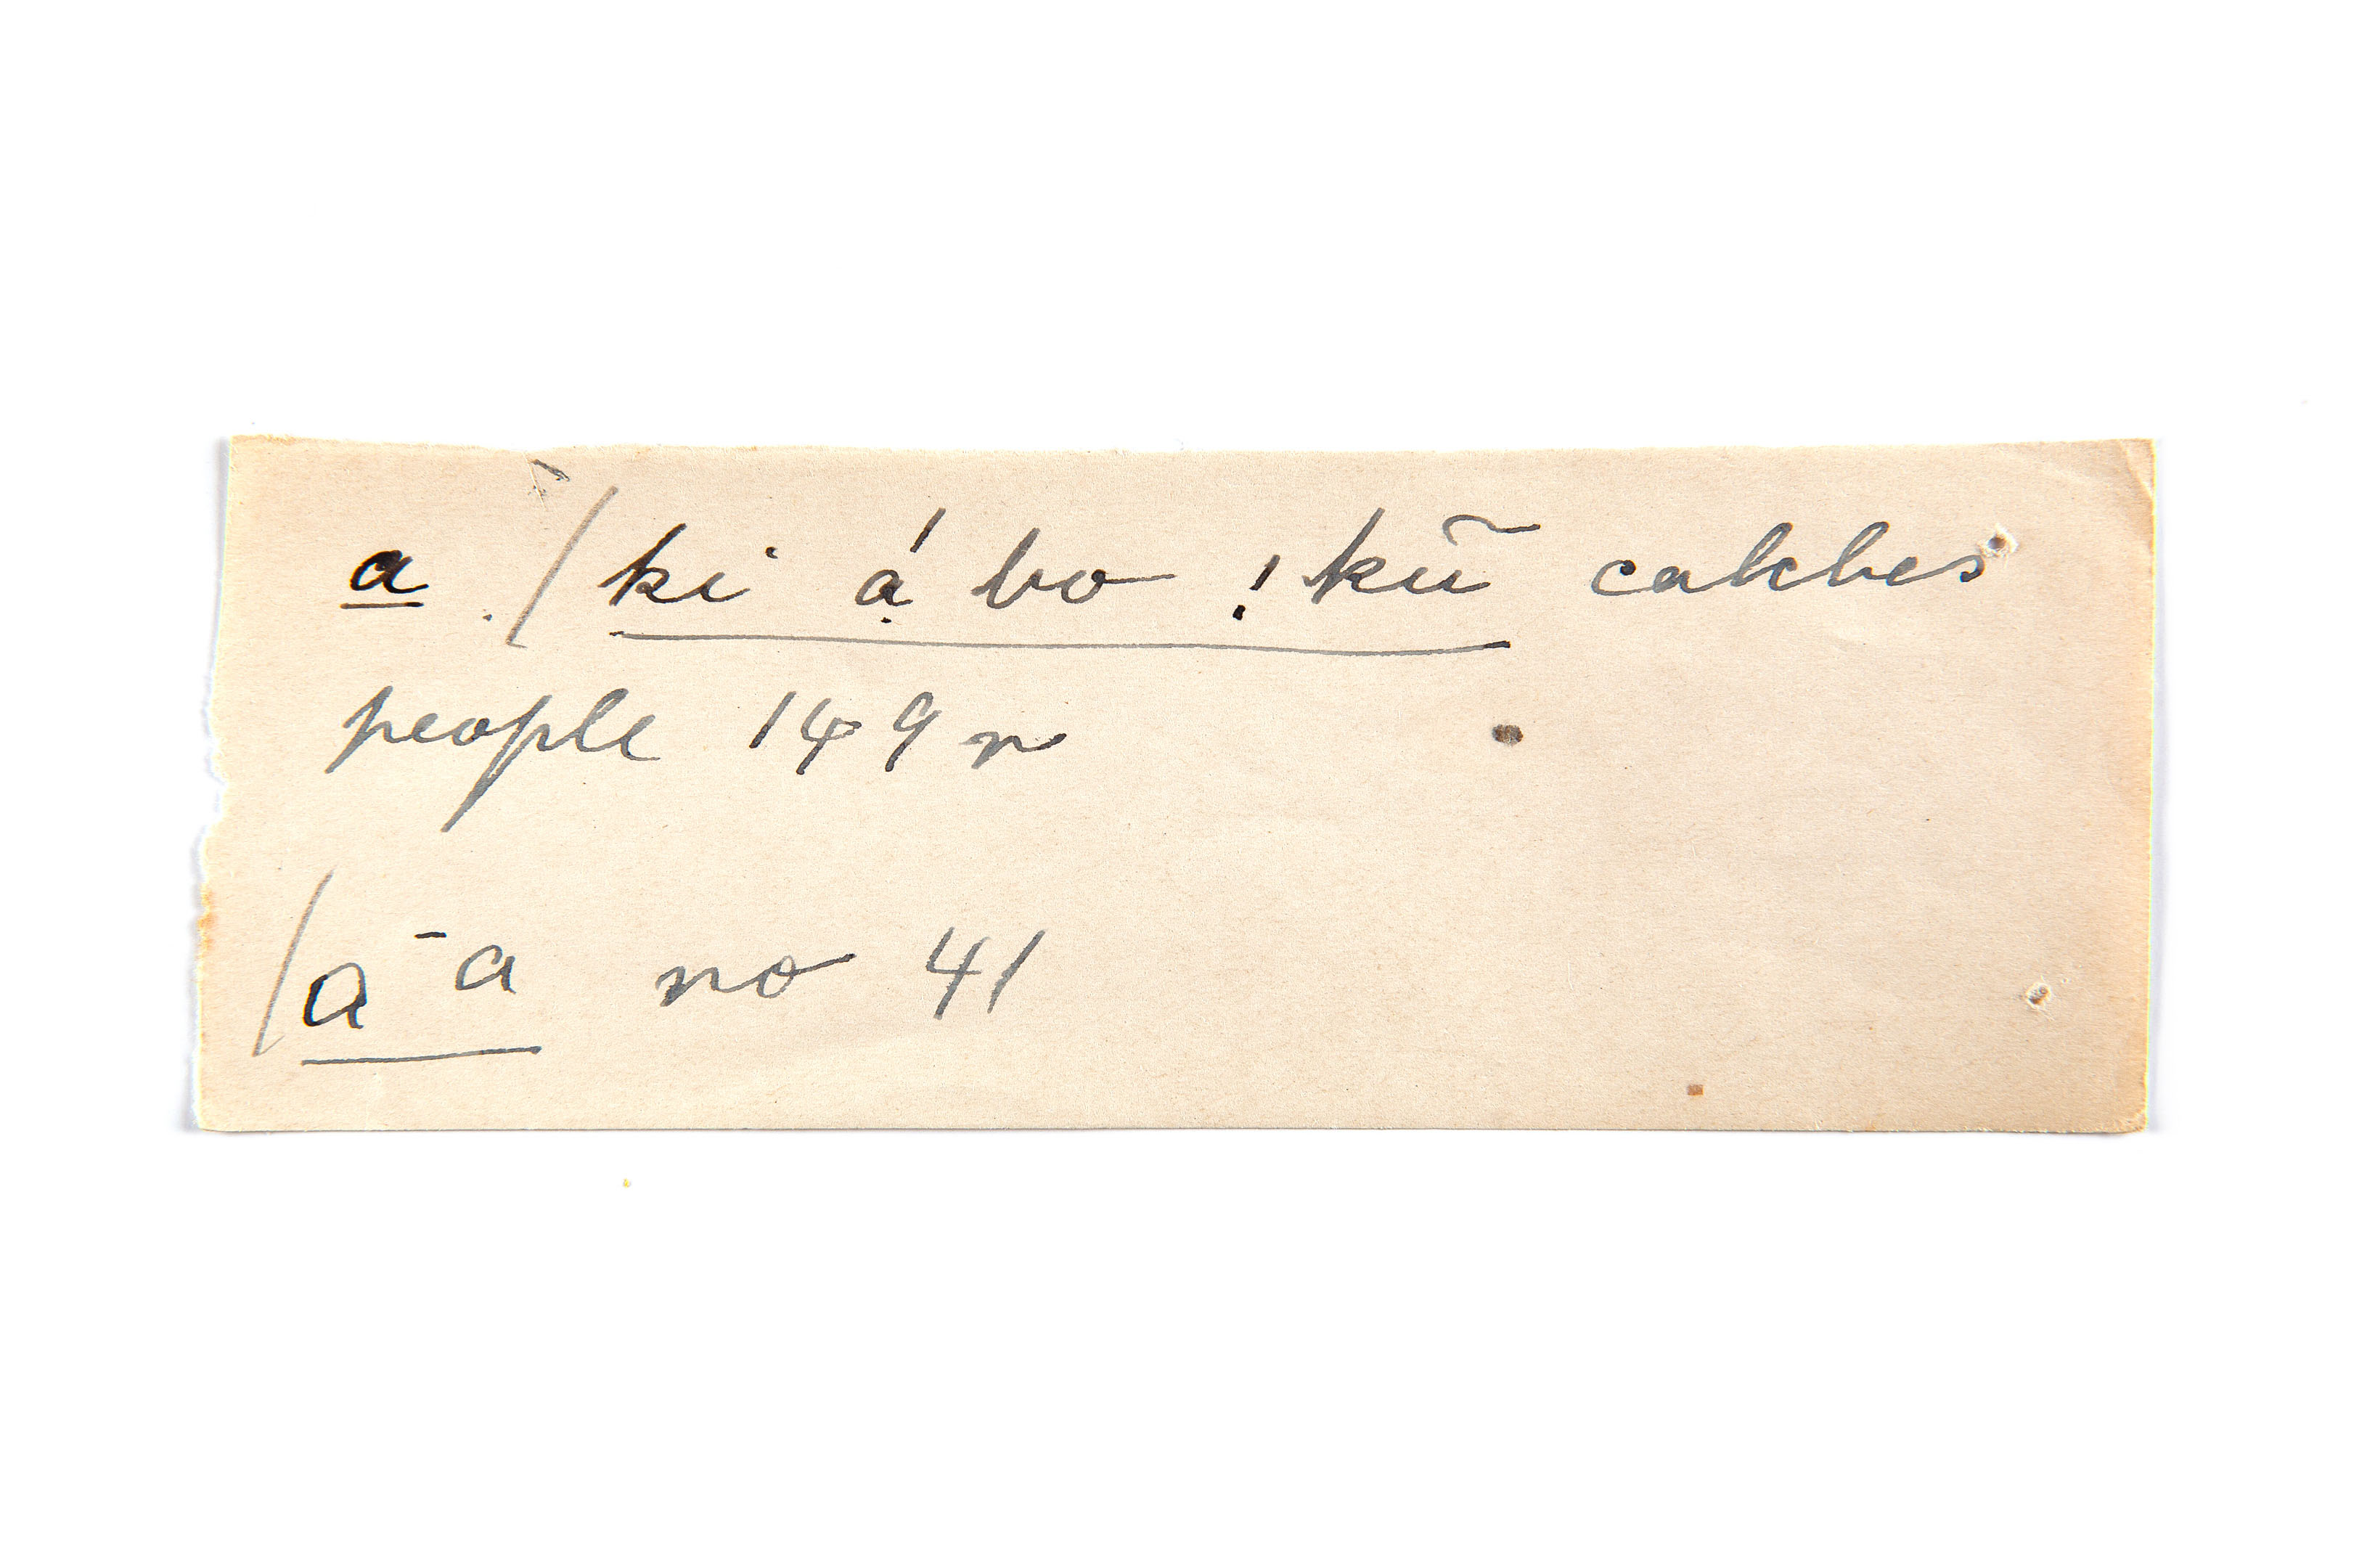 a /ki ạ́ bo ! kũ catches
people 149 n
/a ̄ a no 41